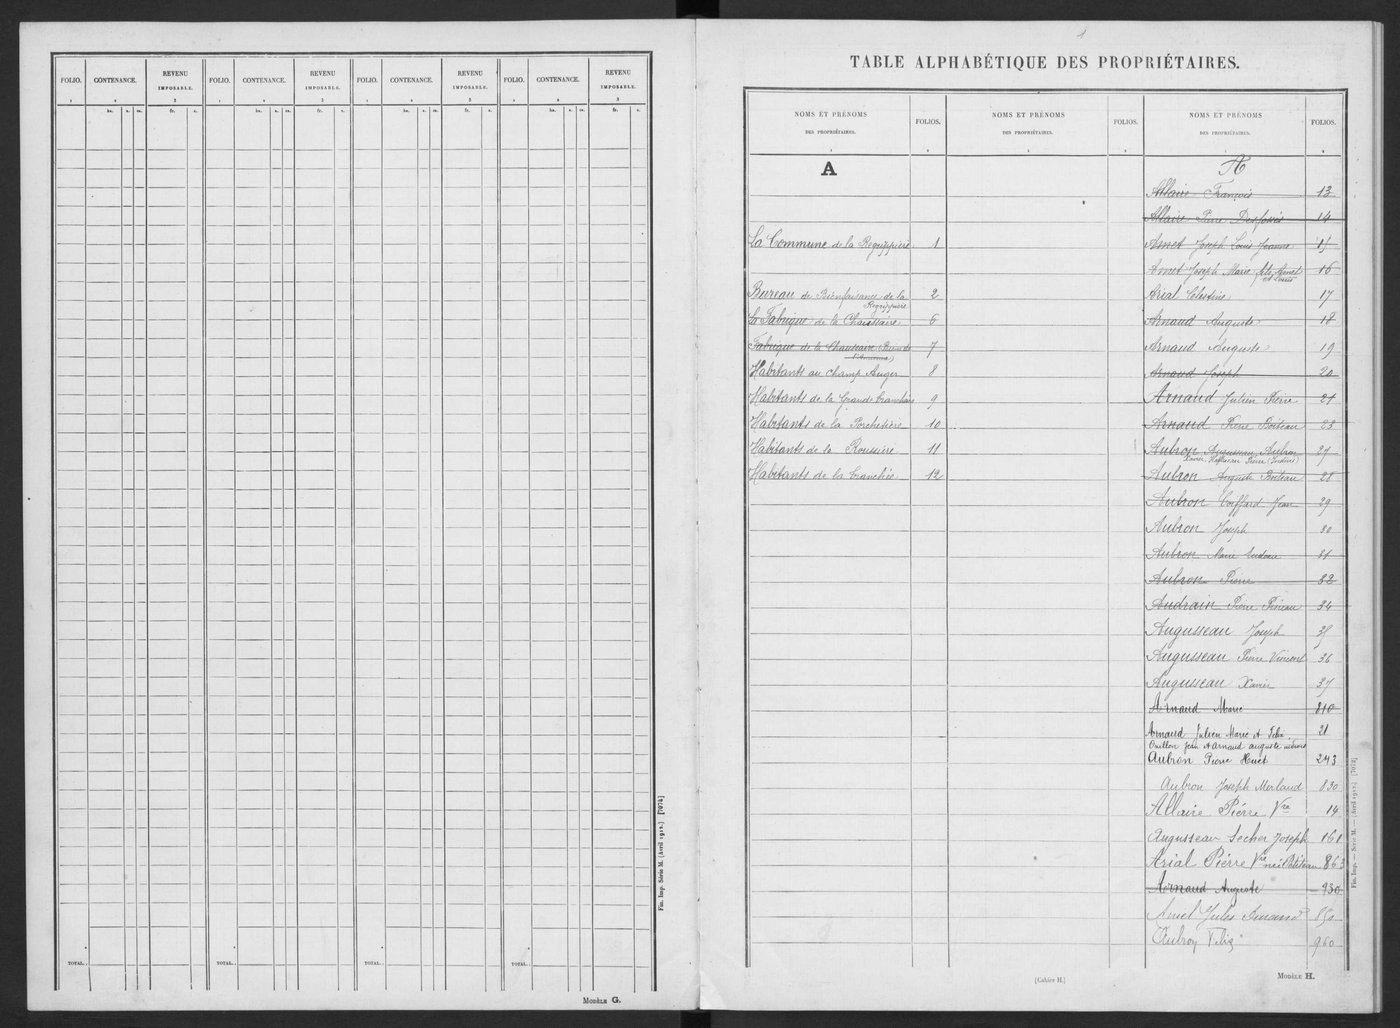 FOLIO. CONTENANCE. REVENU IMPOSABLE. FOLIO. CONTENANCE. REVENU IMPOSABLE. FOLIO. CONTENANCE. REVENU IMPOSABLE. FOLIO. CONTENANCE. REVENU IMPOSABLE.
1 2 3 1 2 3 1 2 3 1 2 3
ha. a. ca. fr. c. ha. a. ca. fr. c. ha. a. ca. fr. c. ha. a. ca. fr. c.
TOTAL. . TOTAL. . TOTAL. . TOTAL. .
Fin. Imp. Série M. (Avril 1912.) [7074]
MODÈLE G.
1
TABLE ALPHABÉTIQUE DES PROPRIÉTAIRES.
NOMS ET PRÉNOMS DES PROPRIÉTAIRES. FOLIOS.
A
La Commune de la Regrippière 1
Bureau de Bienfaisance de la Regrippière 2
La Fabrique de la Chaussaire 6
Fabrique de la Chaussaire 7
Habitants au Champ Auger 8
Habitants de la Grande 9
Habitants de la Porchetière 10
Habitants de la Roussière 11
Habitants de la 12
NOMS ET PRÉNOMS DES PROPRIÉTAIRES. FOLIOS.
NOMS ET PRÉNOMS DES PROPRIÉTAIRES. FOLIOS.
A
Allaire François 13
Allaire Pierre Desfossés 14
Amet Joseph Louis Jeanne 15
Amet Joseph Marie fils Amet et Louis 16
Arial Célestine 17
Arnaud Auguste 18
Arnaud Auguste 19
Arnaud Joseph 20
Arnaud Julien Pierre 21
Arnaud Pierre Boiteau 23
Aubron Augusseau Aubron 27
Xavier Pierre (Indivis)
Aubron Auguste Boiteau 28
Aubron Coiffard Jean 29
Aubron Joseph 30
Aubron Marie 31
Aubron Pierre 32
Audrain Pierre Pineau 34
Augusseau Joseph 35
Augusseau Pierre Vincent 36
Augusseau Xavier 37
Arnaud Marie 810
Arnaud Julien Marie et Félix 21
Ouillon Jean Arnaud auguste
Aubron Pierre Huet 243
Aubron Joseph Merland 830
Allaire Pierre Vve 14
Augusseau Secher Joseph 161
Arial Pierre Vve née 863
Arnaud Auguste 930
Amel Jules 850
Aubron Félix 960
Fin. Imp. — Série M. — (Avril 1912.) [7072]
[Cahier H.]
MODÈLE H.